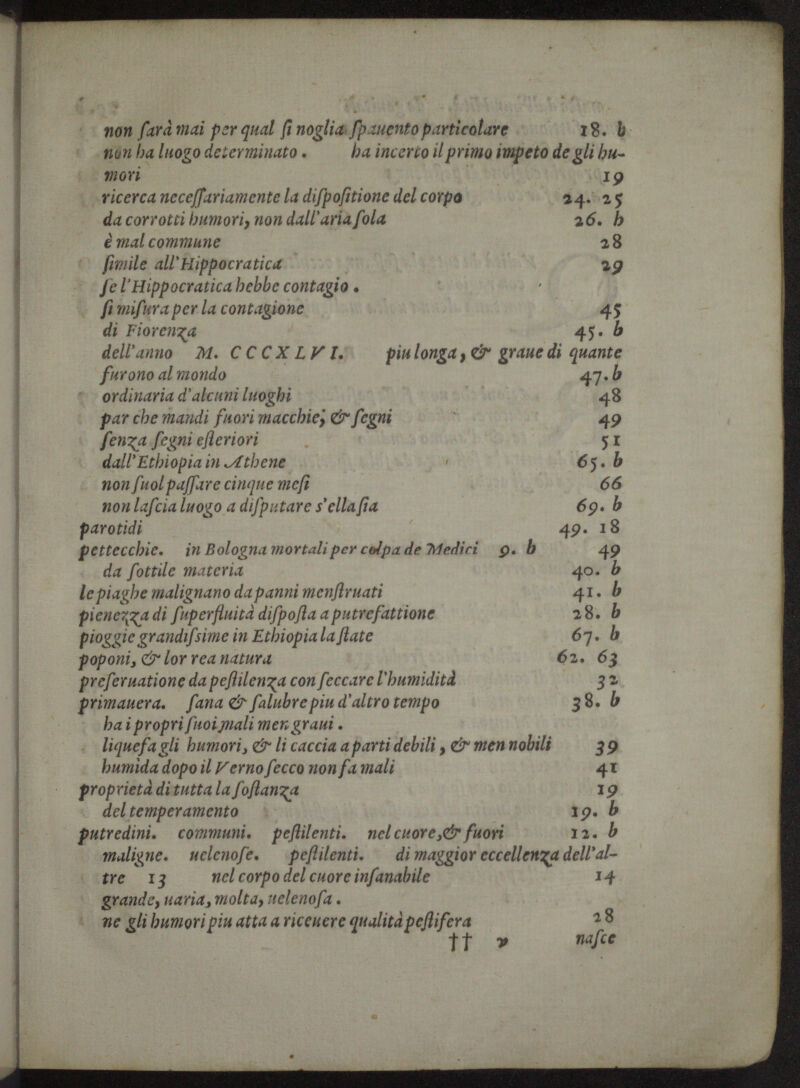 non ſarà mai per qual ſi noglia ſpauento particolare 18. b
non ha luogo determinato. ha incerto il primo impeto de gli hu-
mori 19
ricerca neceſſariamente la diſpoſitione del corpo 24. 25
da corrotti humori, non dall'aria ſola 26. b
è mal commune 28
ſimile all'Hippocratica 29
ſe l'Hippocratica hebbe contagio.
ſi miſura per la contagione 45
di Fiorenza 45. b
dell'anno M. CCCXLVI. piu longa, & graue di quante
furono al mondo 47. b
ordinaria d'alcuni luoghi 48
par che mandi fuori macchie, & ſegni 49
ſenza ſegni eſteriori 51
dall'Ethiopia in Athene 65. b
non ſuol paſſare cinque meſi 66
non laſcia luogo a diſputare s'ella ſia 69. b
parotidi 49. 18
pettecchie. in Bologna mortali per colpa de Medici 9. b 49
da ſottile materia 40. b
le piaghe malignano da panni menſtruati 41. b
pienezza di ſuperfluità diſpoſta a putrefattione 28. b
pioggie grandiſsime in Ethiopia la ſtate 67. b
poponi, & lor rea natura 62. 63
preſeruatione da peſtilenza con ſeccare l'humidità 32
primauera. ſana & ſalubre piu d'altro tempo 38. b
ha i propri ſuoi mali men graui.
liqueſa gli humori, & li caccia a parti debili, & men nobili 39
humida dopo il Verno ſecco non fa mali 41
proprietà di tutta la ſoſtanza 19
del temperamento 19. b
putredini. communi. peſtilenti. nel cuore,& fuori 12. b
maligne. uelenoſe. peſtilenti. di maggior eccellenza dell'al-
tre 13 nel corpo del cuore inſanabile 14
grande, uaria, molta, uelenoſa.
ne gli humori piu atta a riceuere qualità peſtifera 28
†† v naſce